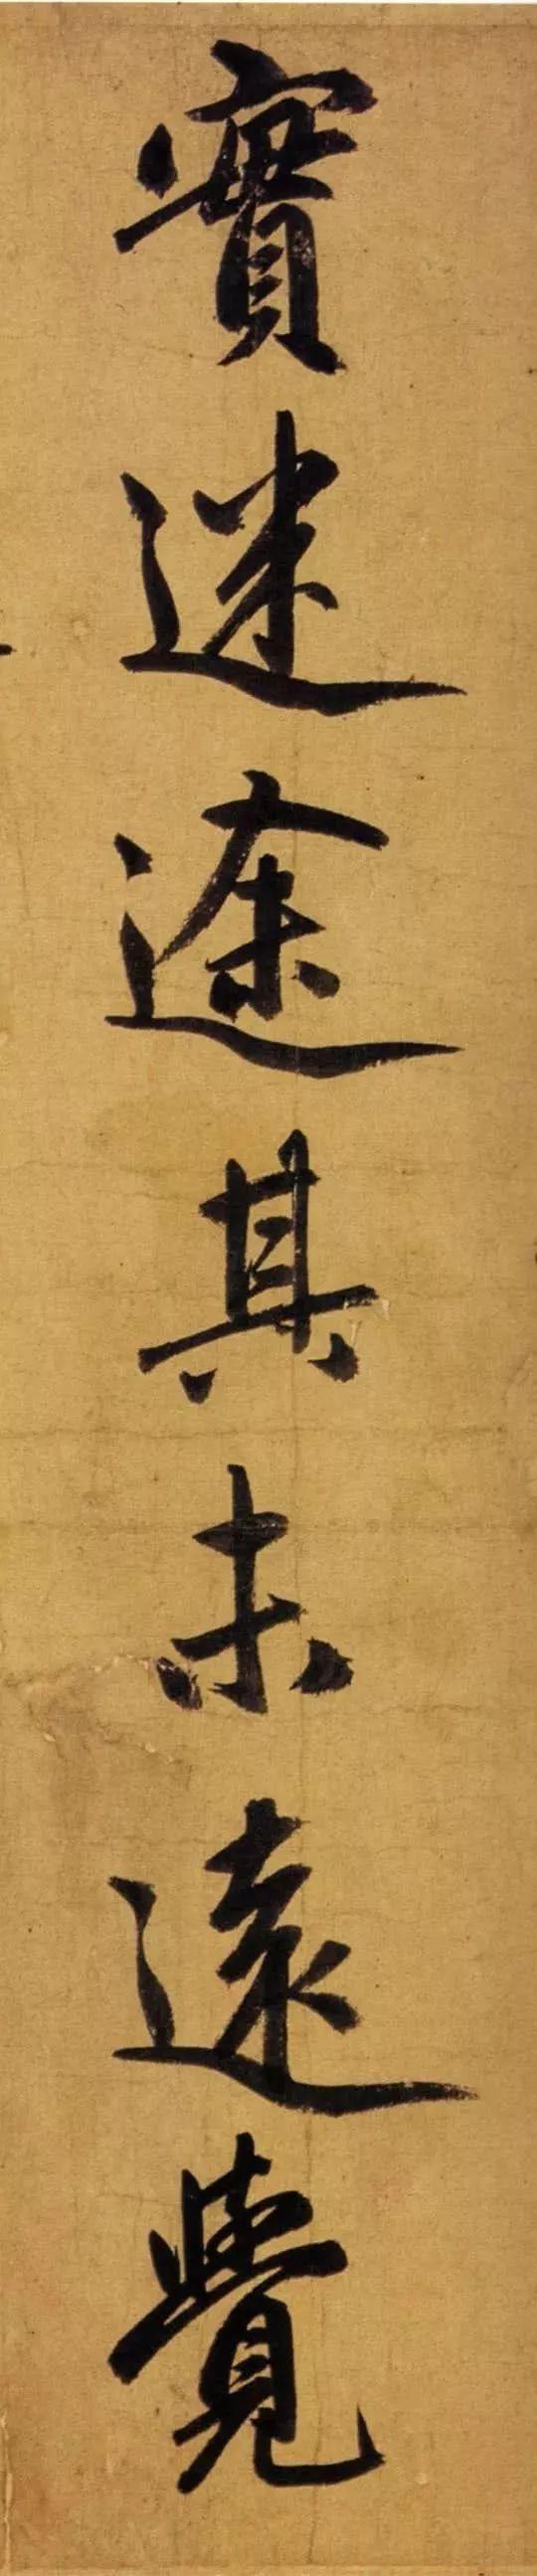 實迷途其未遠覺